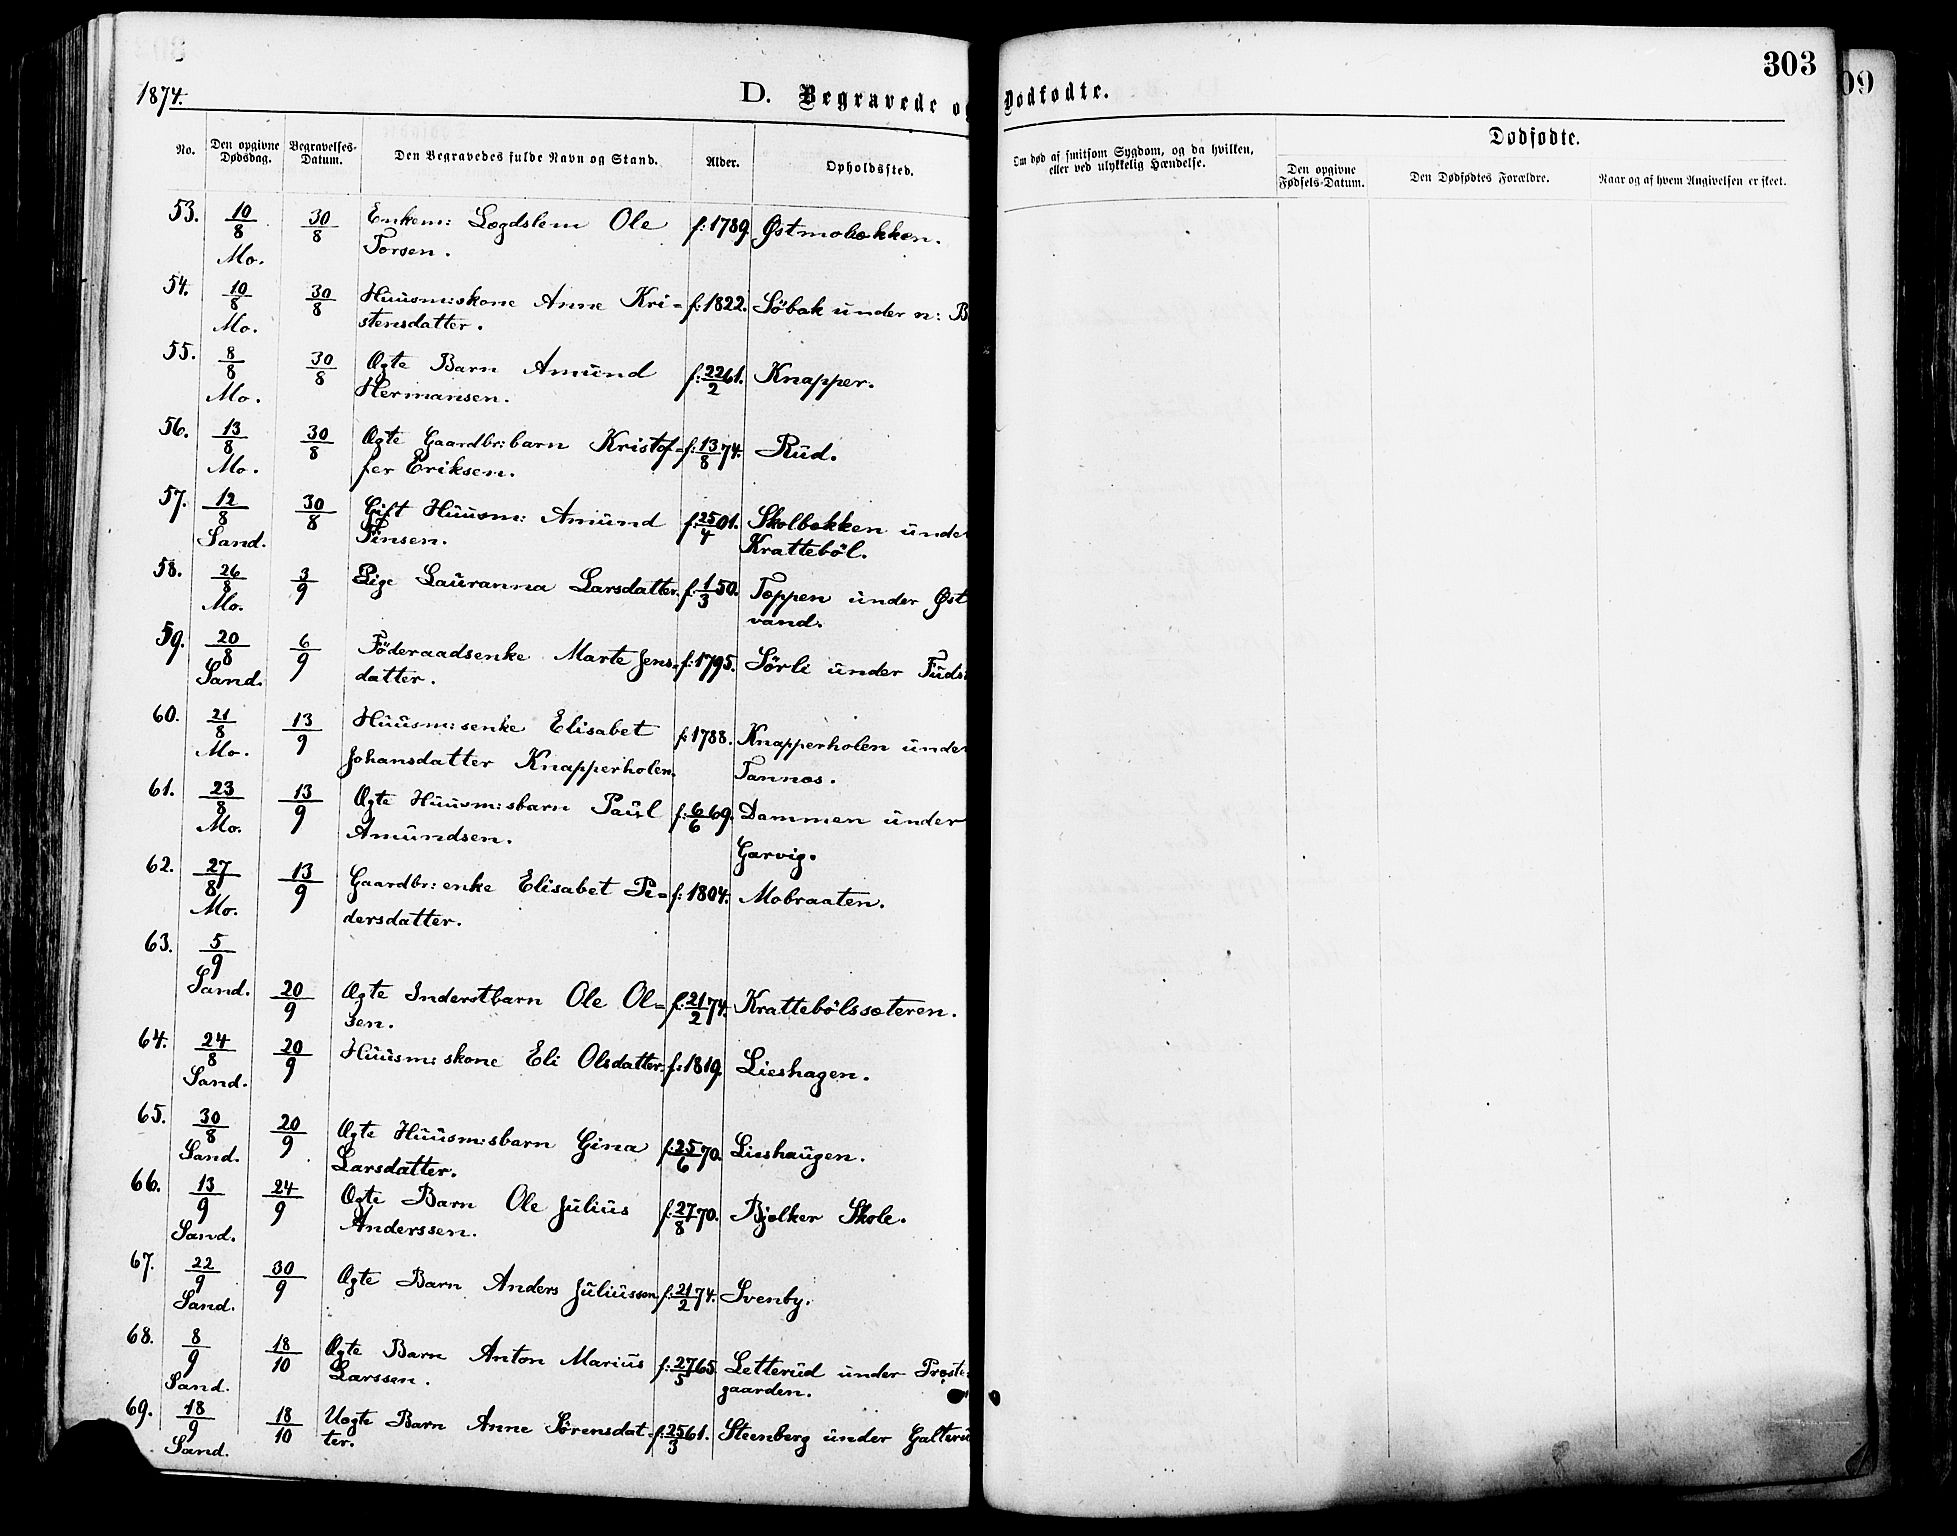 303
09
1874.
D. Begravede og Dødfødte.
No.
Den opgivne Dødsdag.
Begravelses-Datum.
Den Begravedes fulde Navn og Stand.
Alder.
Opholdssted.
Om død af smitsom Sygdom, og da hvilken, eller ved ulykkelig Hændelse.
Dødfødte.
Den opgivne Fødsels-Datum.
Den Dødfødtes Forældre.
Naar og af hvem Angivelsen er skeet.
53. 10/8 30/8 Enkem: Lægdslem Ole f: 1789. Østmobækken.
Mo. Torsen.
54. 10/8 30/8 Huusm:skone Anne Kri= f: 1822. Söbak under n: B
Mo. stensdatter.
55. 8/8 30/8 Ægte Barn Amund f: 22/2 61. Knapper.
Mo. Hermansen.
56. 13/8 30/8 Ægte Gaardbr:barn Kristof= f: 13/8 74. Rud.
Mo. fer Eriksen.
57. 12/8 30/8 Gift Huusm: Amund f: 25/4 01. Skolbækken unde
Sand. Finsen. Kratteböl.
58. 26/8 3/9 Pige Lauranna Larsdatter. f: 1/3 50. Toppen under Øst
Mo. vand.
59. 20/8 6/9 Föderaadsenke Marte Jens= f: 1795. Sörli under Fuds
Sand. datter.
60. 21/8 13/9 Huusm:senke Elisabet f: 1788. Knapperholen unde
Mo. Johansdatter Knapperholen. Tannæs.
61. 23/8 13/9 Ægte Huusm:sbarn Paul f: 6/6 69. Dammen under
Mo. Amundsen. Garvig.
62. 27/8 13/9 Gaardbr: enke Elisabet Pe= f: 1804. Mobraaten.
Mo. dersdatter.
63. 5/9
Sand. 20/9 Ægte Inderstbarn Ole Ol= f: 21/2 74. Krattebölssæteren.
sen.
64. 24/8 20/9 Huusm:skone Eli Olsdatter. f: 1819. Lieshagen.
Sand.
65. 30/8 20/9 Ægte Huusm:sbarn Gina f: 25/6 70. Lieshaugen.
Sand. Larsdatter.
66. 13/9 24/9 Ægte Barn Ole Julius f: 27/8 70. Bjælker Skole.
Sand. Anderssen.
67. 22/9 30/9 Ægte Barn Anders Juliussen f: 21/2 74. Svenby.
Sand.
68. 8/9 18/10 Ægte Barn Anton Marius f: 27/5 65. Letterud under Præste=
Sand. Larssen. gaarden.
69. 18/9 18/10 Uægte Barn Anne Sörensdat= f: 25/3 61. Steenberg under Galteru
Sand. ter.